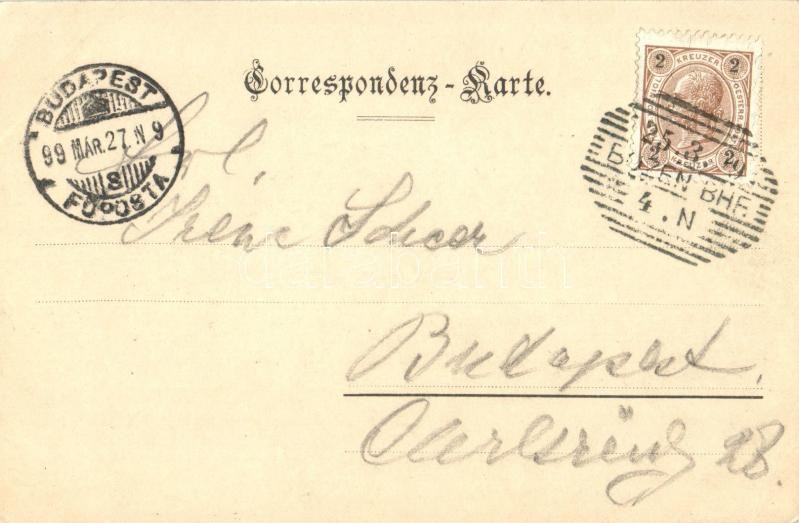 Correspondenz-Karte.
BUDAPEST
99 MÁR. 27. N 9
8
FŐPOSTA
2 KREUZER 2
2 KREUZER 20
25. 3.
BOZEN BHF.
4. N
Frl.
Irene Scheer
Budapest.
28.
darabanth